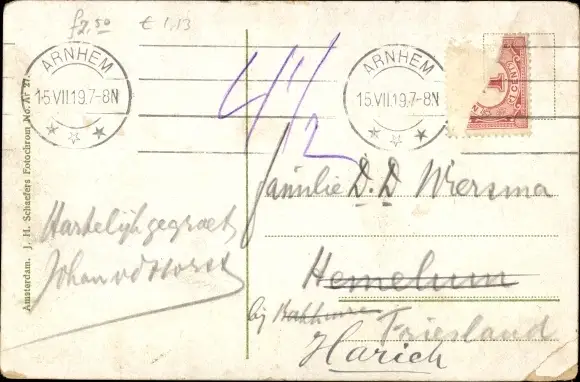 f2,50 € 1,13
ARNHEM
15.VII.19.7-8N
ARNHEM
15.VII.19.7-8N
1
½ CENT
4½
Familie D. D Wiersma
Hartelijk gegroet
Johan v d Horst
Hemelum
bij Bakhuizen
Friesland
Harich
Amsterdam. J. H. Schaefers Fotochrom No. Ar 27.